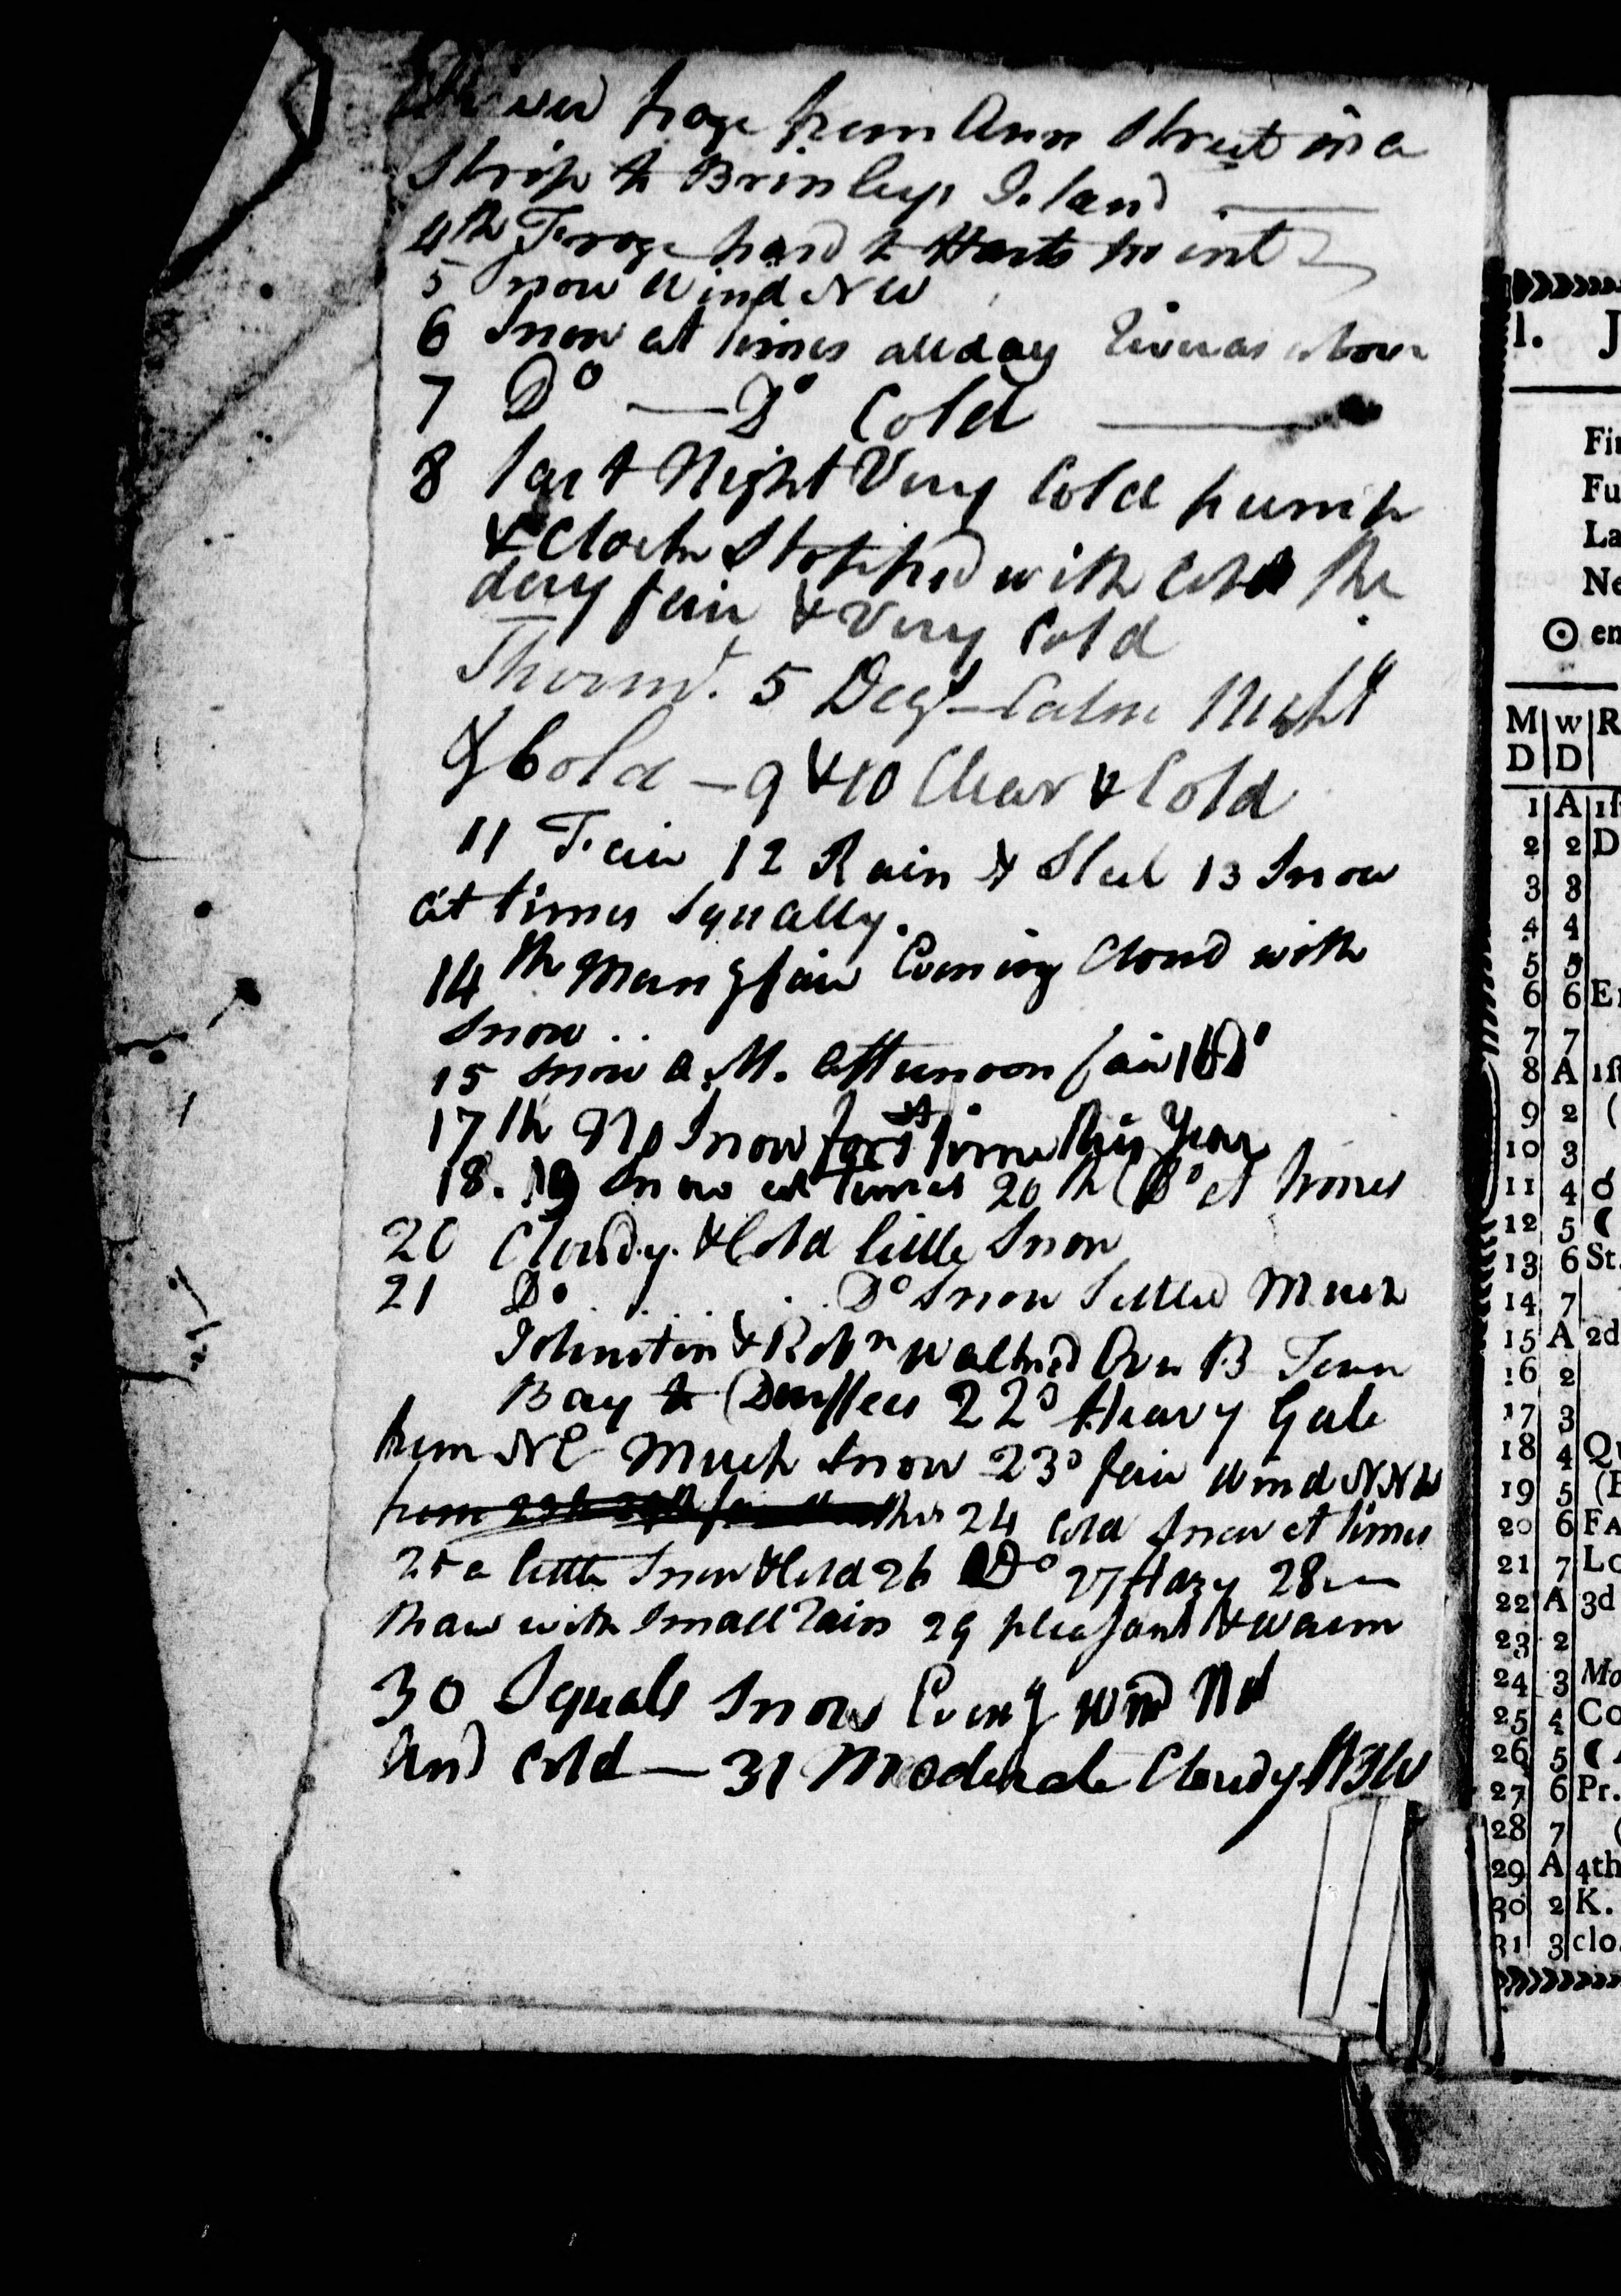 River froze from Ann Street in a
Strip to Brinleys Island
4th Froze hard to Harts point
5 Snow Wind NW
6 Snow at times all day River as above
7 Do — Do Cold
8 last Night Very Cold pump
& Clock Stopped with Cold the
day fair & Very Cold
Thermr. 5 Degs — Calm Night
& Cold — 9 & 10 Clear & Cold
11 Fair 12 Rain & Sleet 13 Snow
at times Squally.
14th Morng fair Evening Cloud with
Snow ..
15 Snow A.M. afternoon fair 16 Do
17th No Snow for 1st time this Year
18. 19 Snow at times 20th Do at times
20 Cloudy. & Cold little Snow
21 Do . . . . . Do Snow Settled Much
Johnston & Robn walked Over B Town
Bay to 22d Heavy Gale
from NE Much Snow 23d fair Wind NNW
24 Cold Snow at times
25 a little Snow & Cold 26 Do 27 Hazy 28
thaw with Small Rain 29 pleasant & warm
30 Squals Snow Eveng wind
And Cold — 31 Moderate Cloudy
1. J
Fir
Fu
La
Ne
☉ en
M W R
D D
1 A 1ſ
2 2 D
3 3
4 4
5 5
6 6 E
7 7
8 A 1ſt
9 2 (
10 3
11 4 ♂
12 5 ☾
13 6 St.
14 7
15 A 2d
16 2
17 3
18 4 Qu
19 5 (
20 6 FA
21 7 Lo
22 A 3d
23 2
24 3 Mo
25 4 Co
26 5 ☾
27 6 Pr.
28 7 (
29 A 4th
30 2 K.
31 3 clo.